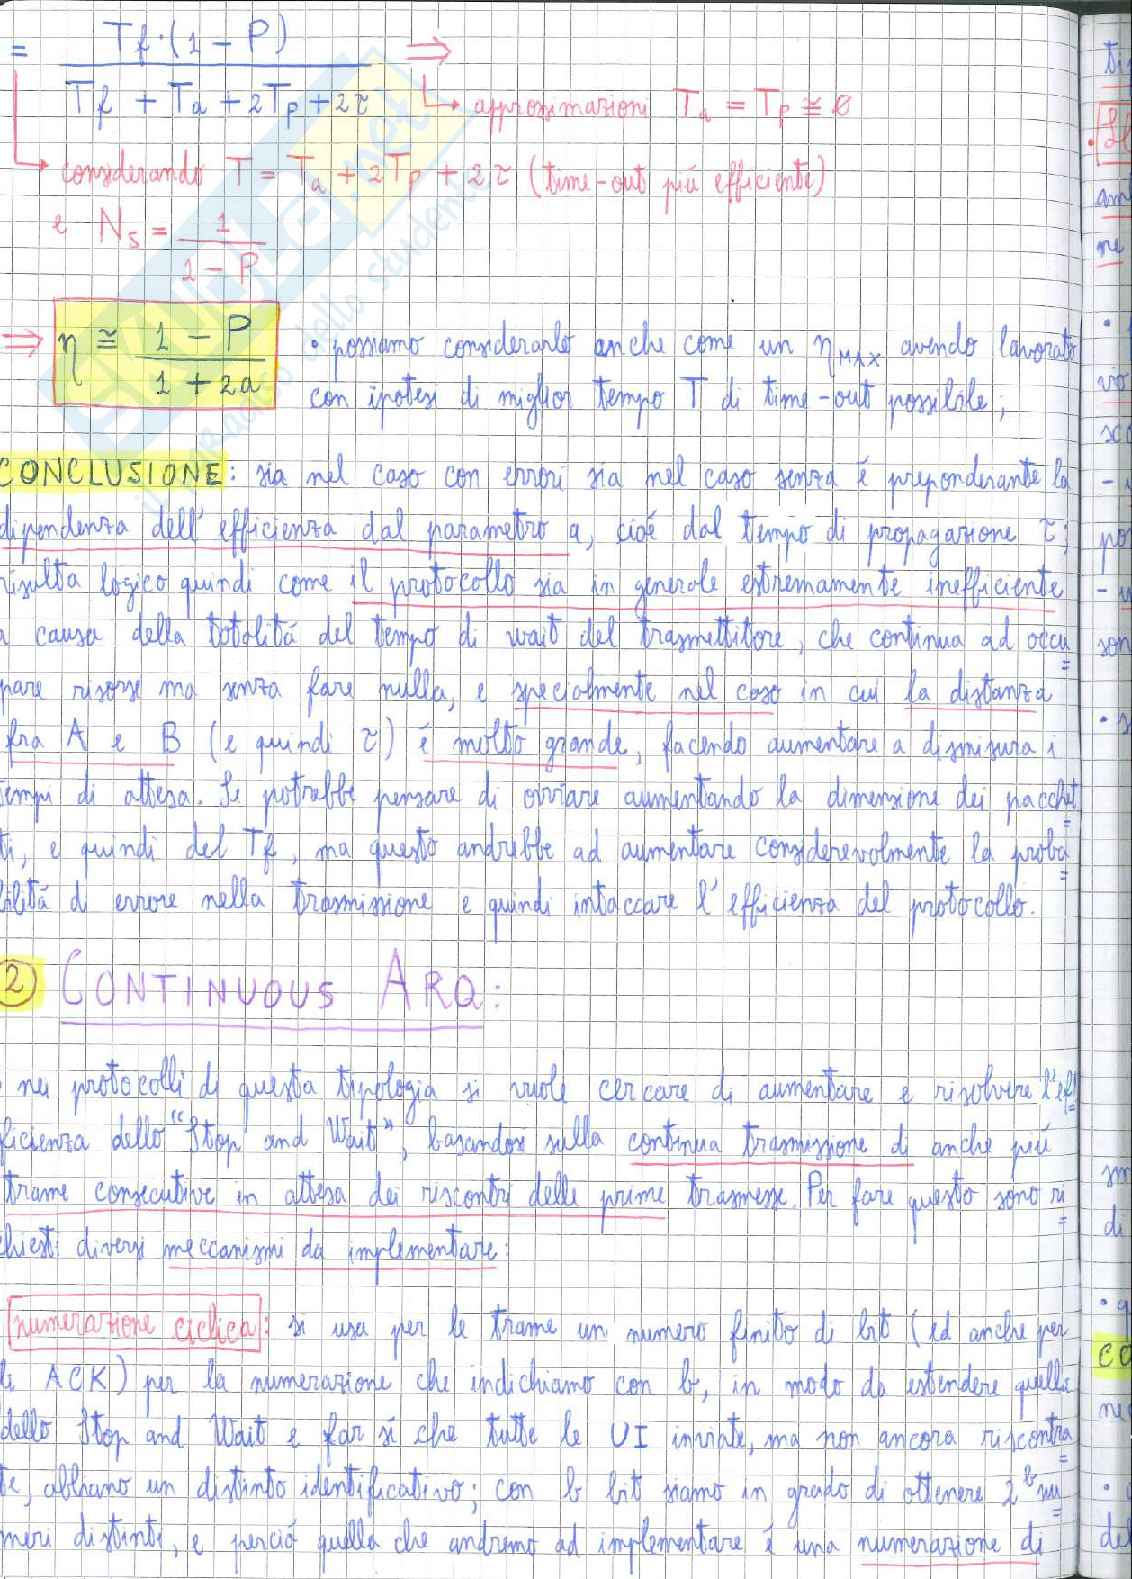 = Tf·(1-P) / Tf + Ta + 2Tp + 2τ ⇒
approssimazioni Ta = Tp ≅ 0
considerando T = Ta + 2Tp + 2τ (time-out piú efficiente)
e Ns = 1 / 1-P
⇒ η ≅ 1-P / 1+2a
• possiamo considerarlo anche come un ηMAX avendo lavorato
con ipotesi di miglior tempo T di time-out possibile;
CONCLUSIONE: sia nel caso con errori sia nel caso senza é preponderante la
dipendenza dell'efficienza dal parametro a, cioé dal tempo di propagazione τ;
risulta logico quindi come il protocollo sia in generale estremamente inefficiente
a causa della totalitá del tempo di wait del trasmettitore, che continua ad occu=
pare risorse ma senza fare nulla, e specialmente nel caso in cui la distanza
fra A e B (e quindi τ) é molto grande, facendo aumentare a dismisura i
tempi di attesa. Si potrebbe pensare di ovviare aumentando la dimensione dei pacchet=
ti, e quindi del Tf, ma questo andrebbe ad aumentare considerevolmente la proba=
bilitá di errore nella trasmissione e quindi intaccare l'efficienza del protocollo.
2) CONTINUOUS ARQ:
nei protocolli di questa tipologia si vuole cercare di aumentare e risolvere l'ef=
ficienza dello "Stop and Wait", basandosi sulla continua trasmissione di anche piú
trame consecutive in attesa dei riscontri delle prime trasmesse. Per fare questo sono ri=
chiesti diversi meccanismi da implementare:
numerazione ciclica: si usa per le trame un numero finito di bit (ed anche per
le ACK) per la numerazione che indichiamo con b, in modo da estendere quella
dello Stop and Wait e far sí che tutte le UI inviate, ma non ancora riscontra=
te, abbiano un distinto identificativo; con b bit siamo in grado di ottenere 2^b nu=
meri distinti, e perció quella che andremo ad implementare é una numerazione di